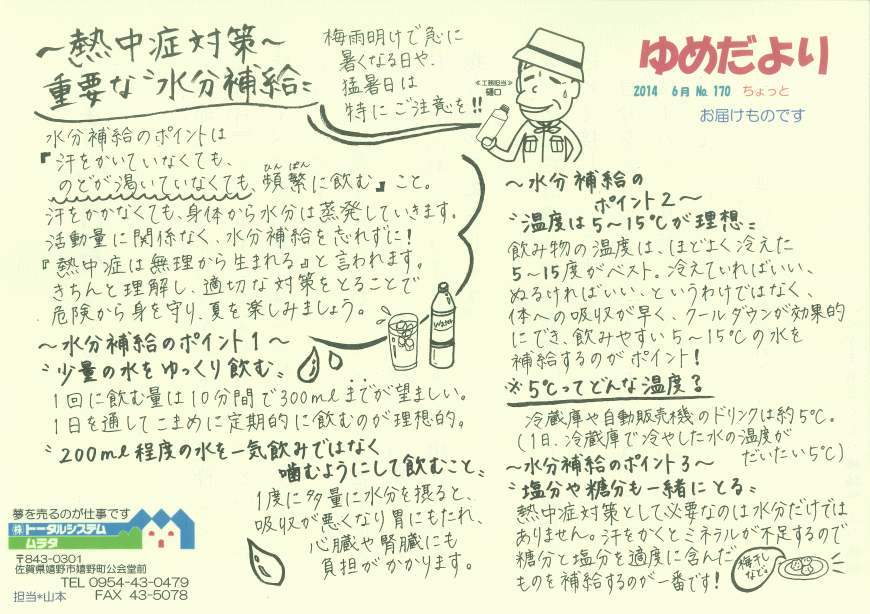 ～熱中症対策～
重要な〝水分補給〟
梅雨明けで急に
暑くなる日や、
猛暑日は
特にご注意を!!
≪工務担当≫
樋口
ゆめだより
2014 6月 No.170 ちょっと
お届けものです
水分補給のポイントは
『汗をかいていなくても、
のどが渇いていなくても、頻繁に飲む』こと。
ひん ぱん
汗をかかなくても、身体から水分は蒸発していきます。
活動量に関係なく、水分補給を忘れずに!
『熱中症は無理から生まれる』と言われます。
きちんと理解し、適切な対策をとることで
危険から身を守り、夏を楽しみましょう。
Water
～水分補給のポイント1～
〝少量の水をゆっくり飲む〟
1回に飲む量は10分間で300mlまでが望ましい。
1日を通してこまめに定期的に飲むのが理想的。
〝200ml程度の水を一気飲みではなく
噛むようにして飲むこと〟
1度に多量に水分を摂ると、
吸収が悪くなり胃にもたれ、
心臓や腎臓にも
負担がかかります。
～水分補給の
ポイント2～
〝温度は5～15℃が理想〟
飲み物の温度は、ほどよく冷えた
5～15度がベスト。冷えていればいい、
ぬるければいい、というわけではなく、
体への吸収が早く、クールダウンが効果的
にでき、飲みやすい5～15℃の水を
補給するのがポイント!
※5℃ってどんな温度?
冷蔵庫や自動販売機のドリンクは約5℃。
(1日、冷蔵庫で冷やした水の温度が
だいたい5℃)
～水分補給のポイント3～
〝塩分や糖分も一緒にとる〟
熱中症対策として必要なのは水分だけでは
ありません。汗をかくとミネラルが不足するので
糖分と塩分を適度に含んだ
ものを補給するのが一番です!
梅干し
など。
夢を売るのが仕事です
㈱トータルシステム
ムラタ
〒843-0301
佐賀県嬉野市嬉野町公会堂前
TEL 0954-43-0479
担当*山本 FAX 43-5078